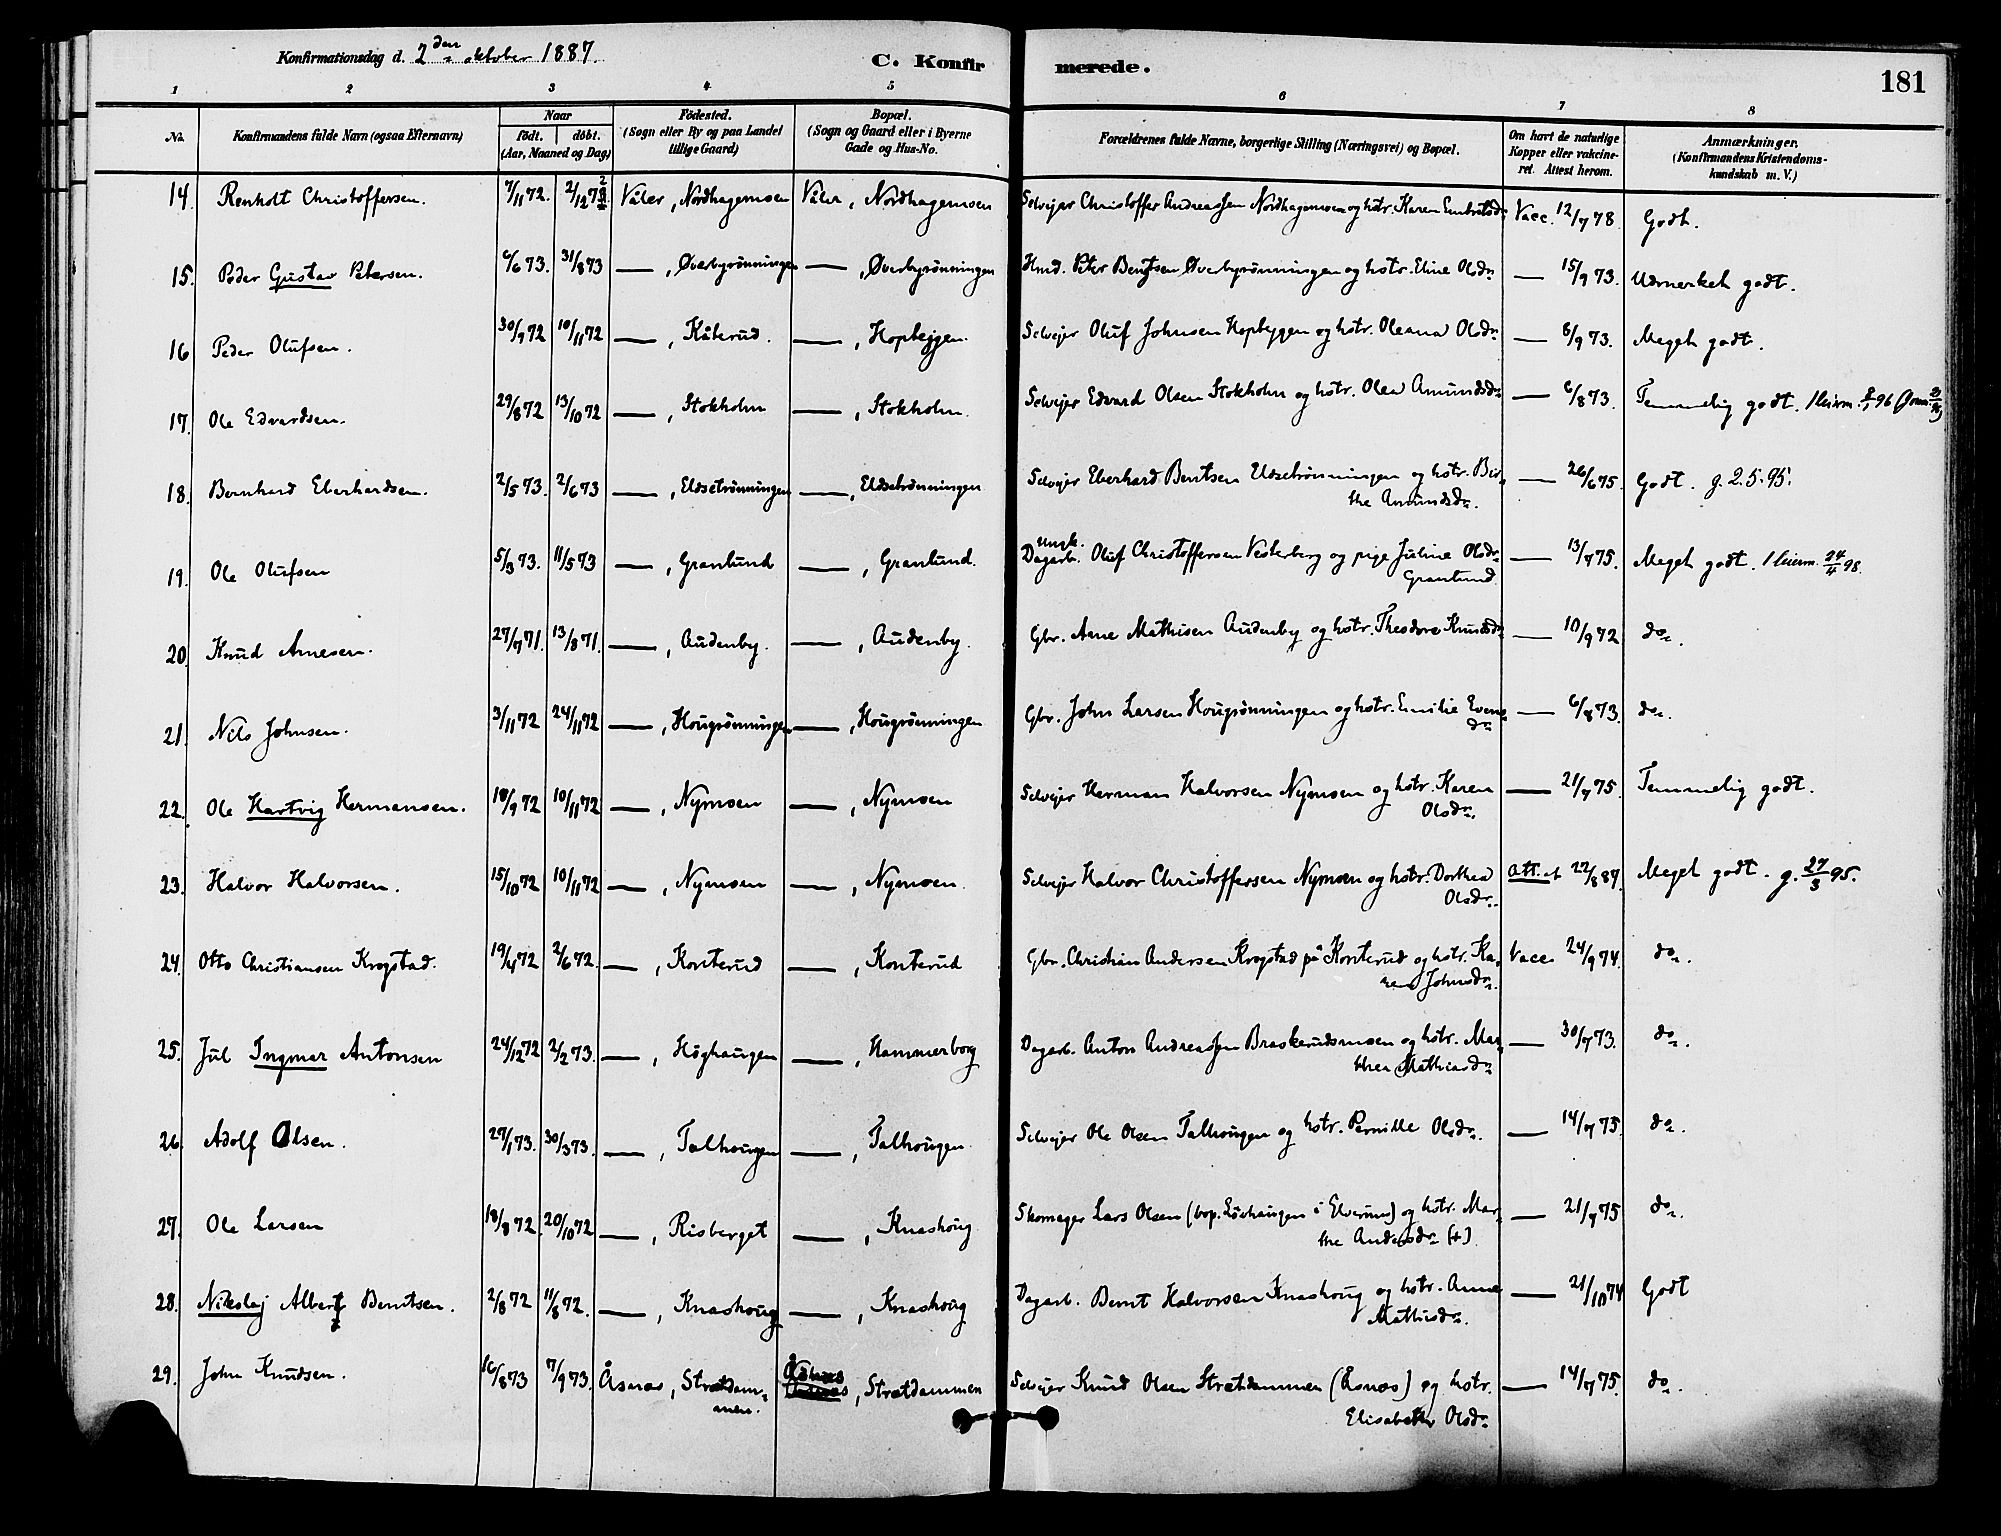 Konfirmationsdag d. 2den oktober 1887.
C. Konfirmerede.
181
1 2 3 4 5 6 7 8
No. Konfirmandens fulde Navn (ogsaa Efternavn) Naar født. døbt. (Aar, Maaned og Dag) Fødested. (Sogn eller By og paa Landet tillige Gaard) Bopæl. (Sogn og Gaard eller i Byerne Gade og Hus-No. Forældrenes fulde Navne, borgerlige Stilling (Næringsvei) og Bopæl. Om havt de naturlige Kopper eller vakcineret. Attest herom. Anmærkninger. (Konfirmandens Kristendomskundskab m. V.)
14. Renholt Christoffersen. 7/11 72. 2/12 72 Våler, Nordhagemoen Våler, Nordhagemoen Selvejer Christoffer Andreassen Nordhagemoen og hstr. Karen Embretsdr. Vacc. 12/7 78 Godt.
15. Peder Gustav Petersen. 6/6 73. 31/8 73 —, Øverbyrønningen —, Øverbyrønningen Hmd. Peter Bentsen Øverbyrønningen og hstr. Eline Olsdr. — 15/9 73. Udmerket godt.
16 Peder Olufsen. 30/9 72 10/11 72 —, Kåterud. —, Hopbyggen. Selvejer Oluf Johnsen Hopbyggen og hstr. Oleana Olsdr. — 8/9 73. Meget godt.
17. Ole Edvardsen. 29/8 72 13/10 72 —, Stokholm —, Stokholm. Selvejer Edvard Olsen Stokholm og hstr. Olea Amundsdr. — 6/8 73. Temmelig godt. 1 leierm. 96
18. Bernhard Eberhardsen. 2/5 73. 2/6 73 —, Eldsetrønningen —, Eldsetrønningen Selvejer Eberhard Bentsen Eldsetrønningen og hstr. Birthe Amundsdr. — 26/6 75. Godt. g. 2.5.95.
19. Ole Olufsen 5/3 73. 11/5 73 —, Granlund —, Granlund. ungk. Dagarb. Oluf Christoffersen Vesterberg og pige Juline Olsdr. Granlund — 13/7 75. Meget godt. 1 leierm. 24/4 98.
20. Knud Arnesen. 27/7 71. 13/8 71. —, Audenby. —, Audenby. Gbr. Arne Mathisen Audenby og hstr. Theodora Knudsdr. — 10/9 72 do.
21. Nils Johnsen. 3/11 72 24/11 72 —, Hougrønningen —, Hougrønningen Gbr. John Larsen Hougrønningen og hstr. Emilie Evensdr. — 6/8 73. do.
22. Ole Hartvig Hermansen. 18/9 72 10/11 72 —, Nymoen —, Nymoen Selvejer Herman Halvorsen Nymoen og hstr. Karen Olsdr. — 21/7 75. Temmelig godt.
23. Halvor Halvorsen. 15/10 72 10/11 72 —, Nymoen —, Nymoen. Selvejer Halvor Christoffersen Nymoen og hstr. Dorthea Olsdr. Att. 22/8 87. Meget godt. g. 27/3 95.
24. Otto Christiansen Krogstad. 19/4 72 2/6 72. —, Konterud —, Konterud Gbr. Christian Andersen Krogstad på Konterud og hstr. Karen Johnsdr. Vacc. 24/9 74. do.
25. Jul Ingmar Antonsen 24/12 72 2/2 73. —, Høghaugen —, Hammerborg Dagarb. Anton Andreassen Braskerudsmoen og hstr. Marthea Mathiasdr. — 30/7 73. do.
26. Adolf Olsen. 27/1 73. 30/3 73. —, Talhougen —, Talhougen. Selvejer Ole Olsen Talhougen og hstr. Pernille Olsdr. — 14/7 75. do.
27. Ole Larsen 18/8 72. 20/10 72 —, Risberget —, Knashoug Skomager Lars Olsen (bop. Løvhaugen i Elverum) og hstr. Marthe Andersdr. (+). — 21/7 75 do.
28. Nikolaj Albert Berntsen. 2/8 72 11/8 72. —, Knashoug —, Knashoug Dagarb. Bernt Halvorsen Knashoug og hstr. Anne Mathisdr. — 21/10 74 Godt
29. John Knudsen. 16/8 73 7/9 73. Åsnes, Strætdammen. Åsnes, Strætdammen Selvejer Knud Olsen Strætdammen (Åsnæs) og hstr. Elisabeth Olsdr. — 14/7 75. do.